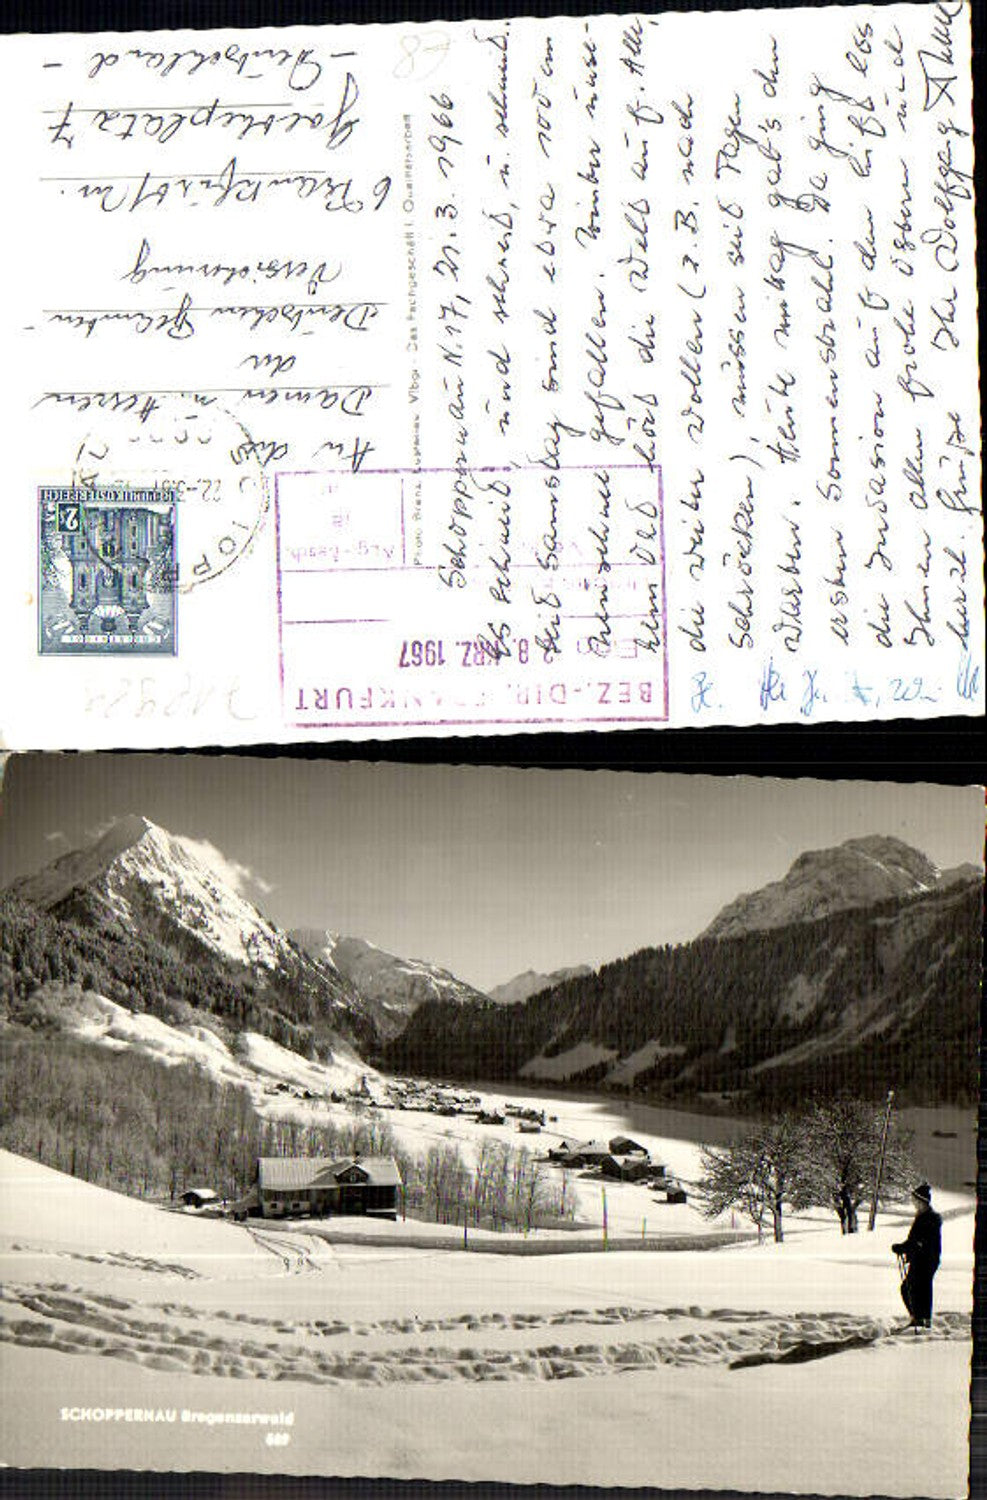 Schoppernau N. 17, 21.3.1966
Es schneit, und schneit, u. schneit..
Seit Samstag sind etwa 100 cm
Neuschnee gefallen. Winter
hört die Welt auf. Alle,
die weiter wollen (z.B. nach
Schröcken), müssen seit Tagen
warten. Heute mittag gab's den
ersten Sonnenstrahl. Da ging
die Invasion auf den Lift los.
Ihnen allen frohe Ostern und
herzl. Grüße Ihr Wolfgang
An die
Damen u. Herren
der
Deutschen Beamten-
Versicherung
6 Frankfurt/M.
Goetheplatz 7
- Deutschland -
Das Fachgeschäft f. Qualitätsarbeit
REPUBLIK ÖSTERREICH
2 S
22.-3.67
BEZ.-DIR. FRANKFURT
Eing. 28. MRZ. 1967
SCHOPPERNAU Bregenzerwald
589